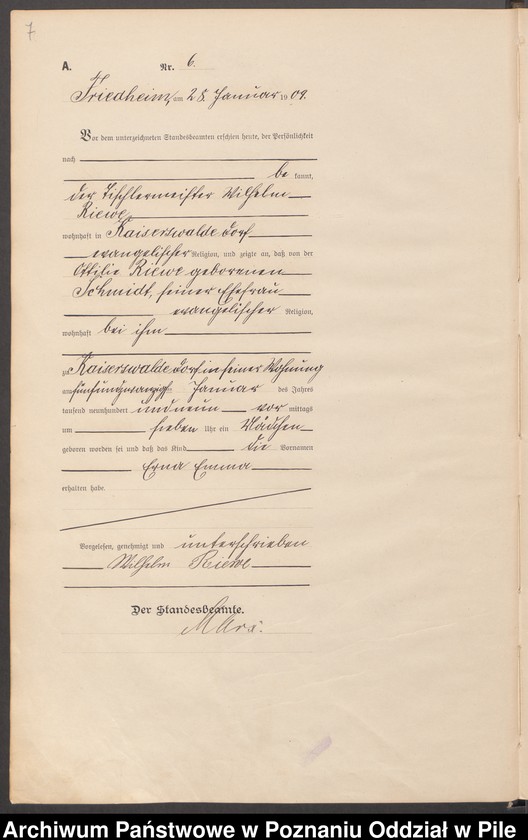 7
A. Nr. 6.
Friedheim, am 28. Januar 1909.
Vor dem unterzeichneten Standesbeamten erschien heute, der Persönlichkeit
nach
be kannt,
der Tischlermeister Wilhelm
Riewe,
wohnhaft in Kaiserswalde Dorf
evangelischer Religion, und zeigte an, daß von der
Ottilie Riewe geborenen
Schmidt, seiner Ehefrau
evangelischer Religion,
wohnhaft bei ihm
zu Kaiserswalde Dorf in seiner Wohnung
am fünfundzwanzigsten Januar des Jahres
tausend neunhundert und neun vor mittags
um sieben Uhr ein Mädchen
geboren worden sei und daß das Kind die Vornamen
Erna Emma
erhalten habe.
Vorgelesen, genehmigt und unterschrieben
Wilhelm Riewe
Der Standesbeamte.
Archiwum Państwowe w Poznaniu Oddział w Pile